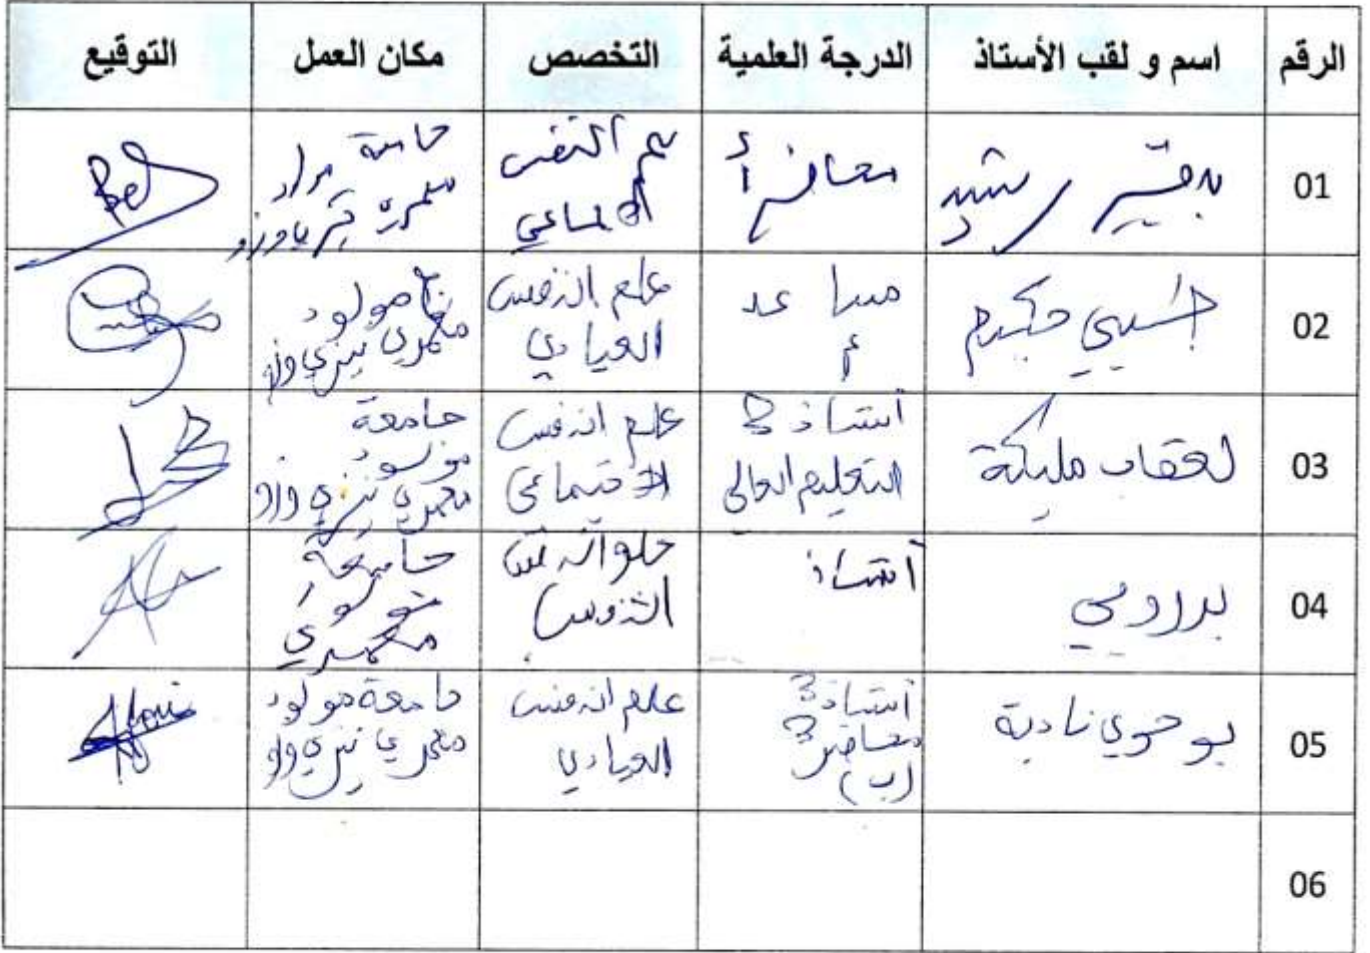 الرقم اسم و لقب الأستاذ الدرجة العلمية التخصص مكان العمل التوقيع
01 رشيد محاضر أ علم النفس الاجتماعي جامعة معمري تيزي وزو
02 حكيم مساعد أ علم النفس العيادي ج مولود معمري تيزي وزو
03 لعقاب مليكة أستاذة التعليم العالي علم النفس الاجتماعي جامعة مولود معمري تيزي وزو
04 أستاذ جامعة مولود معمري
05 نادية أستاذة محاضرة (ب) علم النفس العيادي جامعة مولود معمري تيزي وزو
06